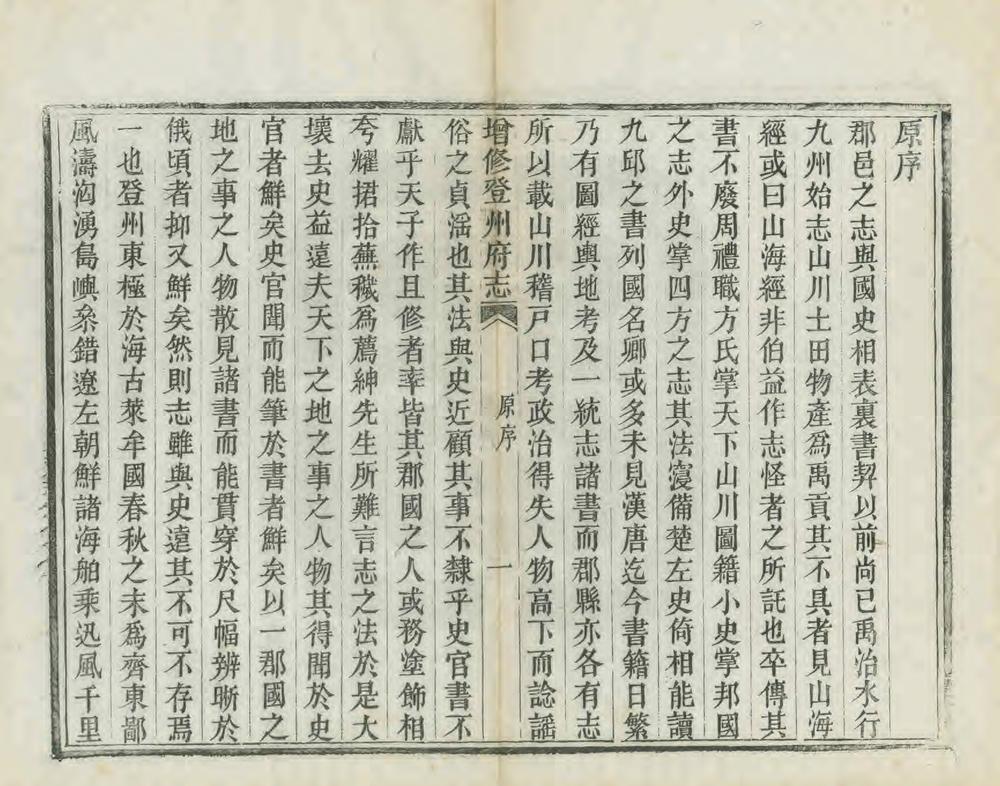 原序
郡邑之志與國史相表裏書契以前尚已禹治水行
九州始志山川土田物產爲禹貢其不具者見山海
經或曰山海經非伯益作志怪者之所託也卒傳其
書不廢周禮職方氏掌天下山川圖籍小史掌邦國
之志外史掌四方之志其法寖備楚左史倚相能讀
九邱之書列國名卿或多未見漢唐迄今書籍日繁
乃有圖經輿地考及一統志諸書而郡縣亦各有志
所以載山川稽戸口考政治得失人物高下而諗謡
增修登州府志 原序 一
俗之貞滛也其法與史近顧其事不隸乎史官書不
獻乎天子作且修者率皆其郡國之人或務塗飾相
夸耀捃拾蕪穢爲薦紳先生所難言志之法於是大
壞去史益遠夫天下之地之事之人物其得聞於史
官者鮮矣史官聞而能筆於書者鮮矣以一郡國之
地之事之人物散見諸書而能貫穿於尺幅辨晰於
俄頃者抑又鮮矣然則志雖與史遠其不可不存焉
一也登州東極於海古萊牟國春秋之末爲齊東鄙
風濤洶湧島嶼叅錯遼左朝鮮諸海舶乘迅風千里